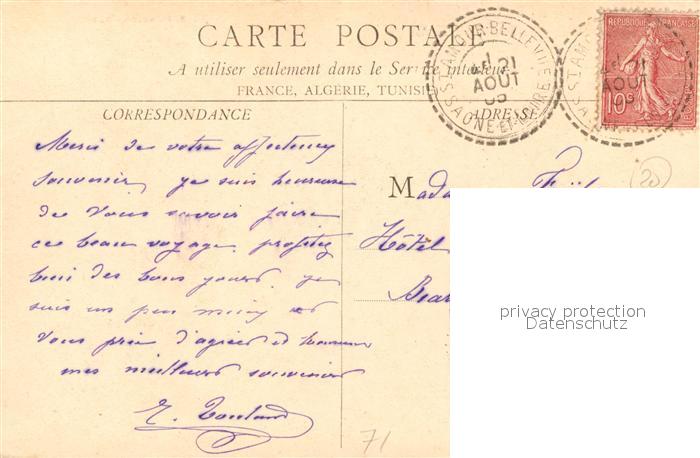 CARTE POSTALE
A utiliser seulement dans le Service intérieur
FRANCE, ALGÉRIE, TUNISIE
CORRESPONDANCE
ADRESSE
ST AMOUR-BELLEVUE
21
AOUT
SAONE-ET-LOIRE
RÉPUBLIQUE FRANÇAISE
10c
21
AOUT
Merci de votre affectueux
souvenir je suis heureuse
de vous savoir faire
ce beau voyage. profitez
bien des bons jours. je
suis un peu mieux et
vous prie d'agréer
mes meilleurs souvenirs
Mada
Hôtel
20
71
privacy protection
Datenschutz